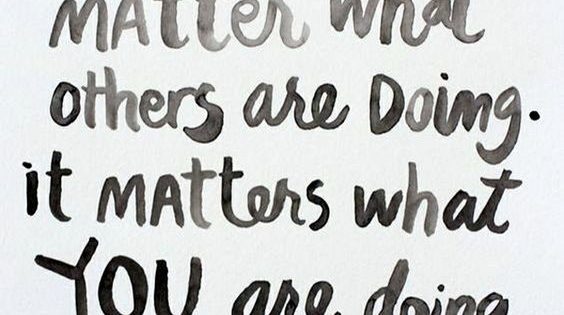 MAtter what
others are Doing.
it MAtters what
YOU are doing